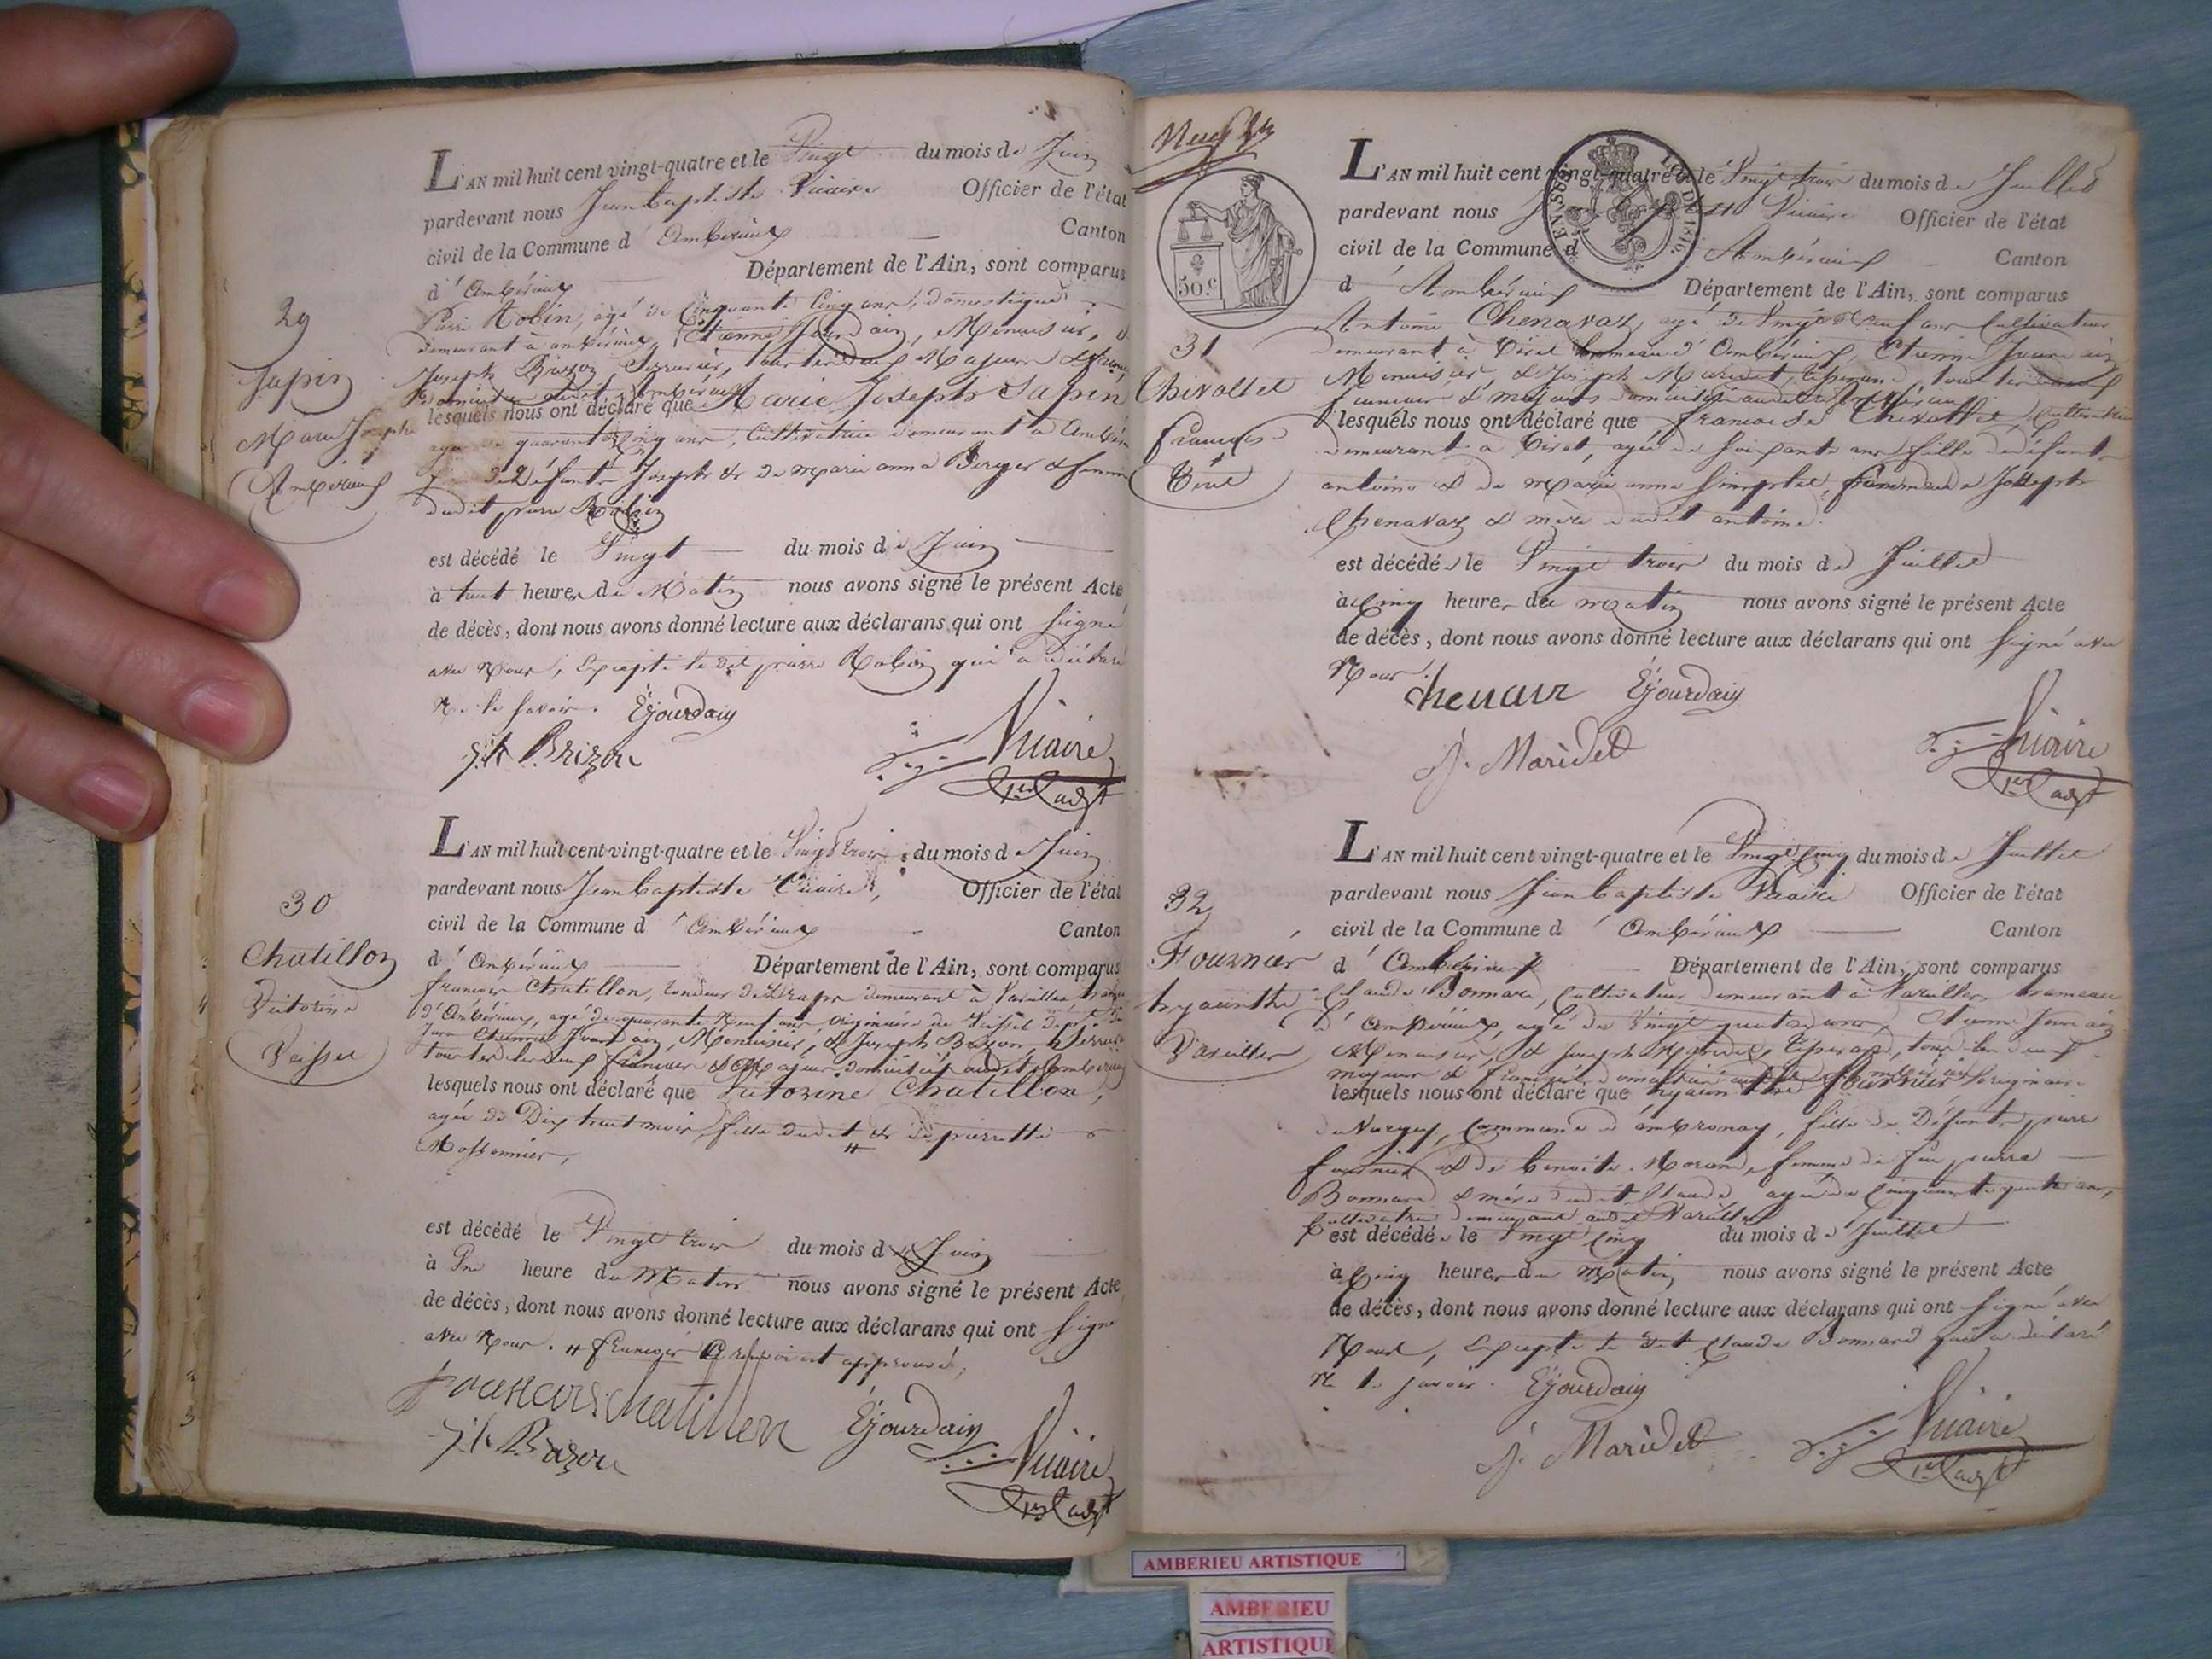 L'AN mil huit cent vingt-quatre et le Vingt du mois de Juin
pardevant nous Jean Baptiste Vicaire Officier de l'état
civil de la Commune d' Ambérieux Canton
d' Ambérieux Département de l'Ain, sont comparus
29
Sapin
Marie Josephe
Ambérieux
Pierre Robin, agé de Cinquante Cinq ans, domestique
demeurant à ambérieux, Etienne Jourdain, Menuisier, &
Joseph Brizon, Serrurier, tous les deux Majeurs &
domiciliés audit Ambérieux
lesquels nous ont déclaré que Marie Joseph Sapin
agée de quarante Cinq ans, Cultivatrice demeurant à
fille de Défunt Joseph & de marie anne Berger & femme
dudit pierre Robin
est décédé le Vingt du mois de Juin
à huit heures du Matin nous avons signé le présent Acte
de décès, dont nous avons donné lecture aux déclarans qui ont Signé
avec Nous, Excepté le dit pierre Robin qui a déclaré
Ne le Savoir. EJourdain
Jh Brizon Vicaire
1er adjt
L'AN mil huit cent vingt-quatre et le Vingt trois du mois de Juin
pardevant nous Jean Baptiste Vicaire, Officier de l'état
civil de la Commune d' Ambérieux Canton
d' Ambérieux Département de l'Ain, sont comparus
30
Chatillon
Victorine
francois Chatillon, tondeur de Draps demeurant à Vareilles
d'Ambérieux, agé de quarante Neuf ans originaire de
Jura Etienne Jourdain, Menuisier, & Joseph Brizon,
tous les deux francais & Majeurs domiciliés audit Ambérieux
lesquels nous ont déclaré que Victorine Chatillon,
agée de Dix huit mois, fille dudit & de pierrette
est décédé le Vingt trois du mois de Juin
à Une heure du Matin nous avons signé le présent Acte
de décès, dont nous avons donné lecture aux déclarans qui ont Signé
avec Nous. # francois Le renvoi est approuvé,
francois Chatillon EJourdain
Jh Brizon Vicaire
1er adjt
L'AN mil huit cent vingt-quatre et le Vingt trois du mois de Juillet
pardevant nous Vicaire Officier de l'état
civil de la Commune d Ambérieux Canton
d' Ambérieux Département de l'Ain, sont comparus
50.c
31
Chivollet
francoise
Tiret
Antoine Chenavaz, agé de Vingt Neuf ans Cultivateur
demeurant à Tiret hameau d'Ambérieux, Etienne Jourdain
Menuisier, & Joseph Maridet, tisserand, tous les deux
francais & majeurs domiciliés audit Ambérieux
lesquels nous ont déclaré que francoise Chivollet, Cultivatrice
demeurant à Tiret, agée de Soixante ans fille de défunt
antoine & de marie anne femme de Joseph
Chenavaz & mère dudit antoine.
est décédée le Vingt trois du mois de Juillet
à Cinq heures du matin nous avons signé le présent Acte
de décès, dont nous avons donné lecture aux déclarans qui ont Signé avec
Nous.
chenavaz EJourdain
J. Maridet Vicaire
1er adjt
L'AN mil huit cent vingt-quatre et le Vingt Cinq du mois de Juillet
pardevant nous Jean Baptiste Vicaire Officier de l'état
civil de la Commune d' Ambérieux Canton
d' Ambérieux Département de l'Ain, sont comparus
32
Fournier
hyacinthe
Vareilles
Claude Bonnard, Cultivateur demeurant à Vareilles hameau
d'ambérieux, agé de Vingt quatre ans, Etienne Jourdain
Menuisier, & Joseph Maridet, tisserand, tous les deux
majeurs & francais domiciliés audit ambérieux
lesquels nous ont déclaré que hyacinthe fournier originaire
commune d'ambronay, fille de Défunt pierre
fournier & de benoite Morand, femme de feu pierre
Bonnard & mère dudit Claude, agée de Cinquante quatre ans,
Cultivatrice demeurant audit Vareilles
est décédée le Vingt Cinq du mois de Juillet
à Cinq heures du matin nous avons signé le présent Acte
de décès, dont nous avons donné lecture aux déclarans qui ont Signé avec
Nous, Excepté le dit Claude Bonnard qui a déclaré
Ne le savoir. EJourdain
J. Maridet Vicaire
1er adjt
AMBERIEU ARTISTIQUE
AMBERIEU
ARTISTIQUE